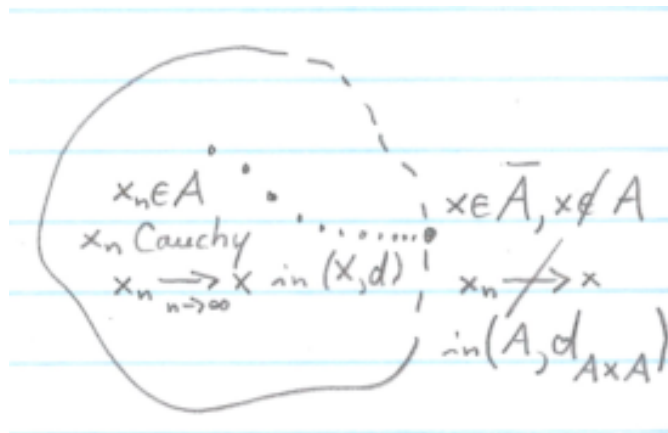 xₙ ∈ A
xₙ Cauchy
xₙ ⟶ x in (X, d)
n→∞
x ∈ A̅, x ∉ A
xₙ ↛ x
in (A, d
A×A)